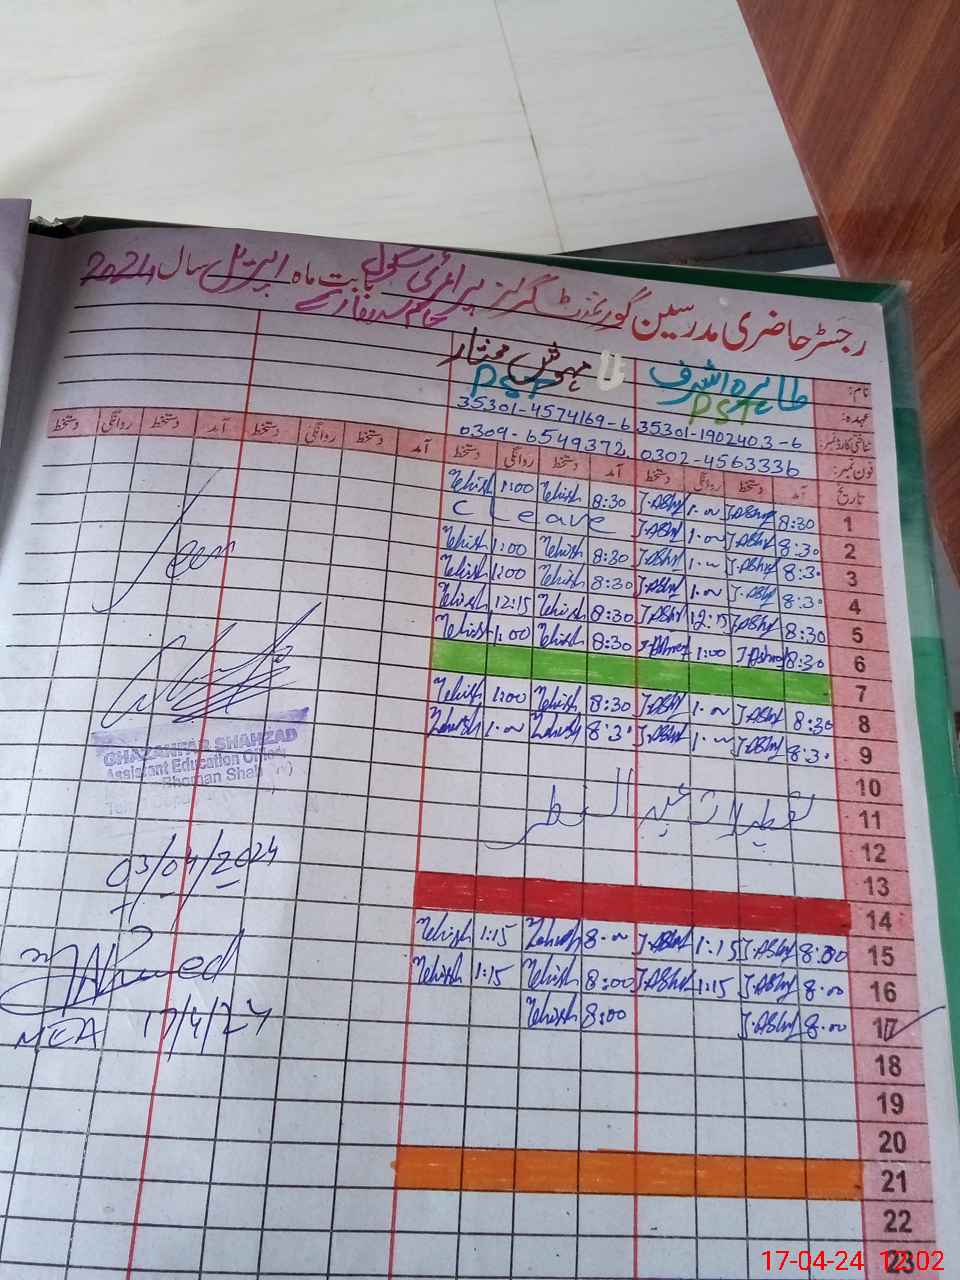 رجسٹر حاضری مدرسین گورنمنٹ گرلز پرائمری سکول بابت ماہ اپریل سال 2024
نام: طاہرہ اشرف مہوش مختار
عہدہ: PST PST
شناختی کارڈ نمبر: 35301-1902403-6 35301-4574169-6
فون نمبر: 0302-4563336 0309-6549372
تاریخ آمد دستخط روانگی دستخط آمد دستخط روانگی دستخط آمد دستخط روانگی دستخط آمد دستخط روانگی دستخط
1 8:30 T.Ashraf 1:00 T.Ashraf 8:30 Mehvish 1:00 Mehvish
2 8:30 T.Ashraf 1:00 T.Ashraf C Leave
3 8:30 T.Ashraf 1:00 T.Ashraf 8:30 Mehvish 1:00 Mehvish
4 8:30 T.Ashraf 1:00 T.Ashraf 8:30 Mehvish 1:00 Mehvish
5 8:30 T.Ashraf 12:15 T.Ashraf 8:30 Mehvish 12:15 Mehvish
6 8:30 T.Ashraf 1:00 T.Ashraf 8:30 Mehvish 1:00 Mehvish
7
8 8:30 T.Ashraf 1:00 T.Ashraf 8:30 Mehvish 1:00 Mehvish
9 8:30 T.Ashraf 1:00 T.Ashraf 8:30 Mehvish 1:00 Mehvish
10
11 تعطیلات عید الفطر
12
13
14
15 8:00 T.Ashraf 1:15 T.Ashraf 8:00 Mehvish 1:15 Mehvish
16 8:00 T.Ashraf 1:15 T.Ashraf 8:00 Mehvish 1:15 Mehvish
17 8:00 T.Ashraf 8:00 Mehvish
18
19
20
21
22
23
Seen
GHAZANFAR SHAHZAD
Assistant Education Officer
03/04/2024
MEA 17/4/24
17-04-24 12:02